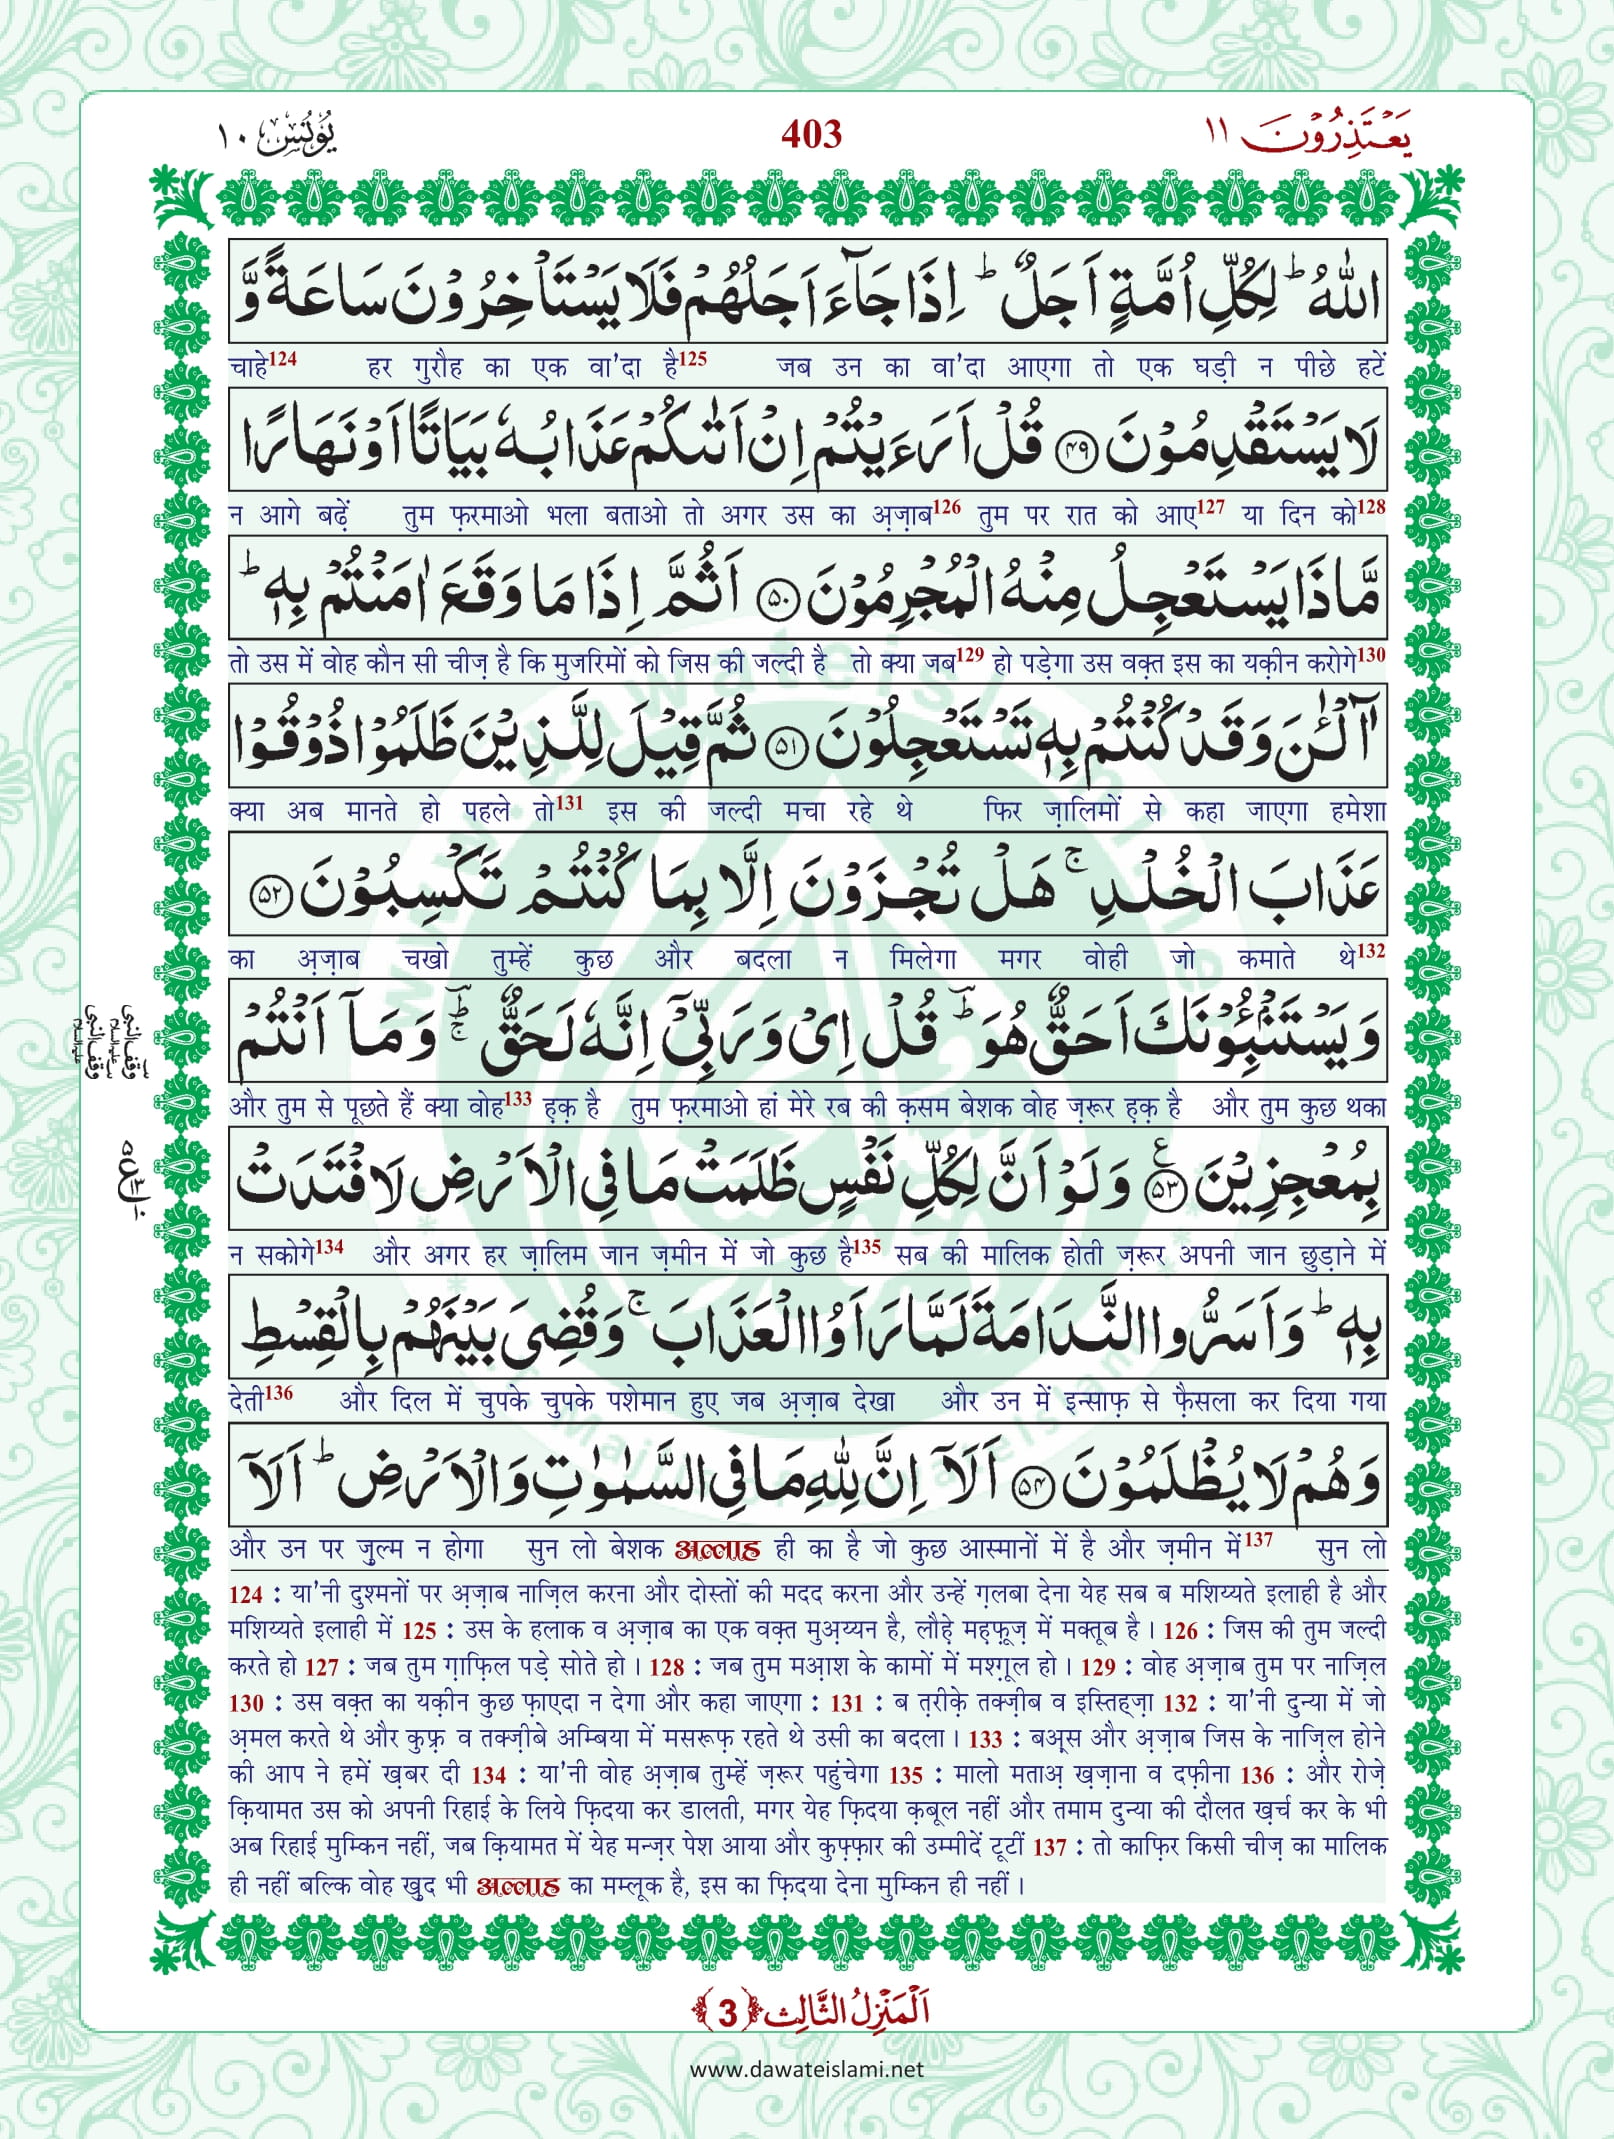 يَعْتَذِرُوْنَ ١١
403
يُوْنُس ١٠
اللّٰهُ ؕ لِكُلِّ اُمَّةٍ اَجَلٌ ؕ اِذَا جَآءَ اَجَلُهُمْ فَلَا يَسْتَاْخِرُوْنَ سَاعَةً وَّ
चाहे124 हर गुरौह का एक वा'दा है125 जब उन का वा'दा आएगा तो एक घड़ी न पीछे हटें
لَا يَسْتَقْدِمُوْنَ ﴿۴۹﴾ قُلْ اَرَءَيْتُمْ اِنْ اَتٰىكُمْ عَذَابُهٗ بَيَاتًا اَوْ نَهَارًا
न आगे बढ़ें तुम फ़रमाओ भला बताओ तो अगर उस का अ़ज़ाब126 तुम पर रात को आए127 या दिन को128
مَّاذَا يَسْتَعْجِلُ مِنْهُ الْمُجْرِمُوْنَ ﴿۵۰﴾ اَثُمَّ اِذَا مَا وَقَعَ اٰمَنْتُمْ بِهٖ ؕ
तो उस में वोह कौन सी चीज़ है कि मुजरिमों को जिस की जल्दी है तो क्या जब129 हो पड़ेगा उस वक़्त इस का यक़ीन करोगे130
آٰلْـٰٔنَ وَقَدْ كُنْتُمْ بِهٖ تَسْتَعْجِلُوْنَ ﴿۵۱﴾ ثُمَّ قِيْلَ لِلَّذِيْنَ ظَلَمُوْا ذُوْقُوْا
क्या अब मानते हो पहले तो131 इस की जल्दी मचा रहे थे फिर ज़ालिमों से कहा जाएगा हमेशा
عَذَابَ الْخُلْدِ ۚ هَلْ تُجْزَوْنَ اِلَّا بِمَا كُنْتُمْ تَكْسِبُوْنَ ﴿۵۲﴾
का अ़ज़ाब चखो तुम्हें कुछ और बदला न मिलेगा मगर वोही जो कमाते थे132
وَيَسْتَنْۢبِـُٔوْنَكَ اَحَقٌّ هُوَ ؕ قُلْ اِيْ وَرَبِّيْۤ اِنَّهٗ لَحَقٌّ ۚؕ وَمَاۤ اَنْتُمْ
और तुम से पूछते हैं क्या वोह133 ह़क़ है तुम फ़रमाओ हां मेरे रब की क़सम बेशक वोह ज़रूर ह़क़ है और तुम कुछ थका
بِمُعْجِزِيْنَ ﴿۵۳﴾ وَلَوْ اَنَّ لِكُلِّ نَفْسٍ ظَلَمَتْ مَا فِي الْاَرْضِ لَافْتَدَتْ
न सकोगे134 और अगर हर ज़ालिम जान ज़मीन में जो कुछ है135 सब की मालिक होती ज़रूर अपनी जान छुड़ाने में
بِهٖ ؕ وَاَسَرُّوا النَّدَامَةَ لَمَّا رَاَوُا الْعَذَابَ ۚ وَقُضِيَ بَيْنَهُمْ بِالْقِسْطِ
देती136 और दिल में चुपके चुपके पशेमान हुए जब अ़ज़ाब देखा और उन में इन्साफ़ से फ़ैसला कर दिया गया
وَهُمْ لَا يُظْلَمُوْنَ ﴿۵۴﴾ اَلَاۤ اِنَّ لِلّٰهِ مَا فِي السَّمٰوٰتِ وَالْاَرْضِ ؕ اَلَاۤ
और उन पर ज़ुल्म न होगा सुन लो बेशक अल्लाह ही का है जो कुछ आस्मानों में है और ज़मीन में137 सुन लो
124 : या'नी दुश्मनों पर अ़ज़ाब नाज़िल करना और दोस्तों की मदद करना और उन्हें ग़लबा देना येह सब ब मशिय्यते इलाही है और
मशिय्यते इलाही में 125 : उस के हलाक व अ़ज़ाब का एक वक़्त मुअ़य्यन है, लौहे़ मह़फ़ूज़ में मक्तूब है। 126 : जिस की तुम जल्दी
करते हो 127 : जब तुम ग़ाफ़िल पड़े सोते हो। 128 : जब तुम मआ़श के कामों में मश्ग़ूल हो। 129 : वोह अ़ज़ाब तुम पर नाज़िल
130 : उस वक़्त का यक़ीन कुछ फ़ाएदा न देगा और कहा जाएगा : 131 : ब त़रीके़ तक्ज़ीब व इस्तिह्ज़ा 132 : या'नी दुन्या में जो
अ़मल करते थे और कुफ़्र व तक्ज़ीबे अम्बिया में मसरूफ़ रहते थे उसी का बदला। 133 : बअ़्स और अ़ज़ाब जिस के नाज़िल होने
की आप ने हमें ख़बर दी 134 : या'नी वोह अ़ज़ाब तुम्हें ज़रूर पहुंचेगा 135 : मालो मताअ़ ख़ज़ाना व दफ़ीना 136 : और रोज़े
क़ियामत उस को अपनी रिहाई के लिये फ़िदया कर डालती, मगर येह फ़िदया क़बूल नहीं और तमाम दुन्या की दौलत ख़र्च कर के भी
अब रिहाई मुम्किन नहीं, जब क़ियामत में येह मन्ज़र पेश आया और कुफ़्फ़ार की उम्मीदें टूटीं 137 : तो काफ़िर किसी चीज़ का मालिक
ही नहीं बल्कि वोह ख़ुद भी अल्लाह का मम्लूक है, इस का फ़िदया देना मुम्किन ही नहीं।
اَلْمَنْزِلُ الثَّالِث ﴿3﴾
www.dawateislami.net